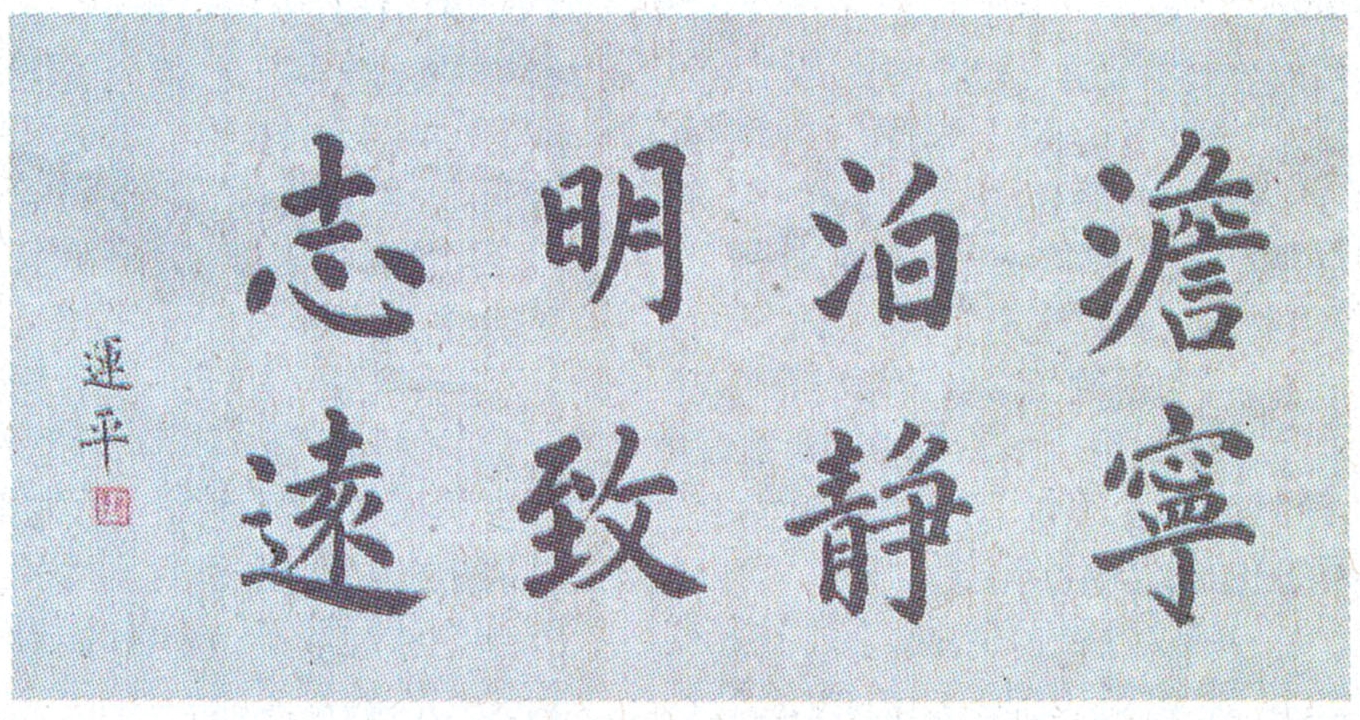 澹泊明志
寧静致遠
運平